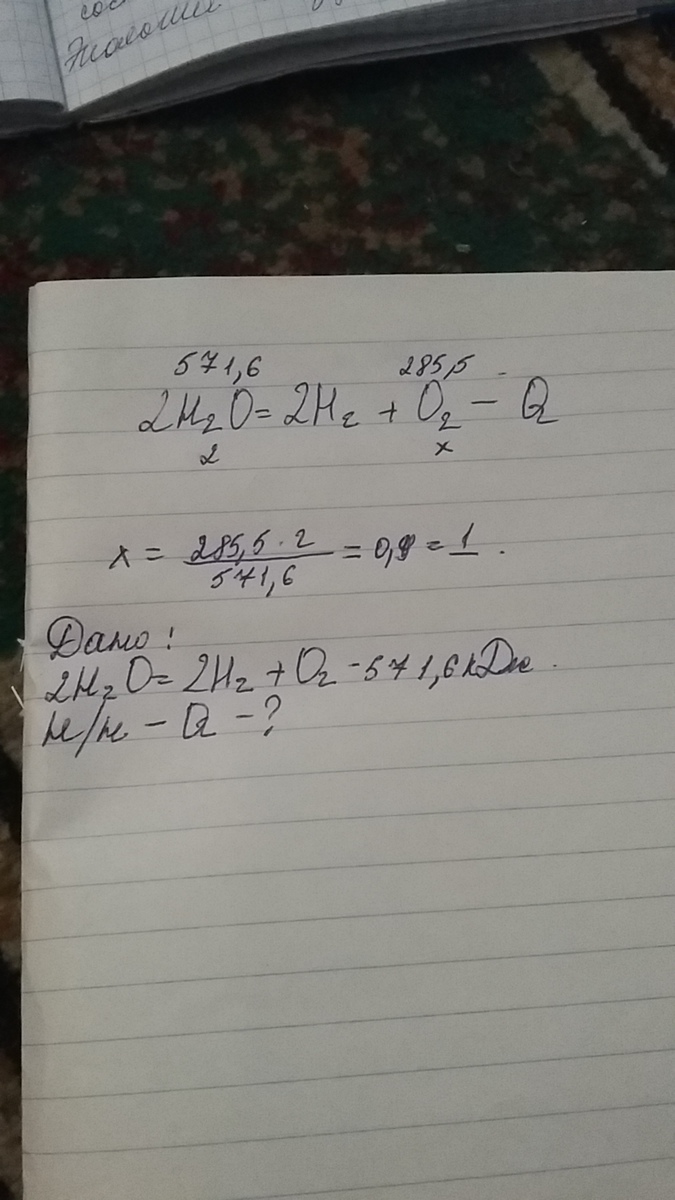 571,6 285,5
2H₂O = 2H₂ + O₂ − Q
2 x
x = 285,5 · 2 / 571,6 = 0,9 = 1.
Дано:
2H₂O = 2H₂ + O₂ - 571,6 кДж.
н/н − Q − ?